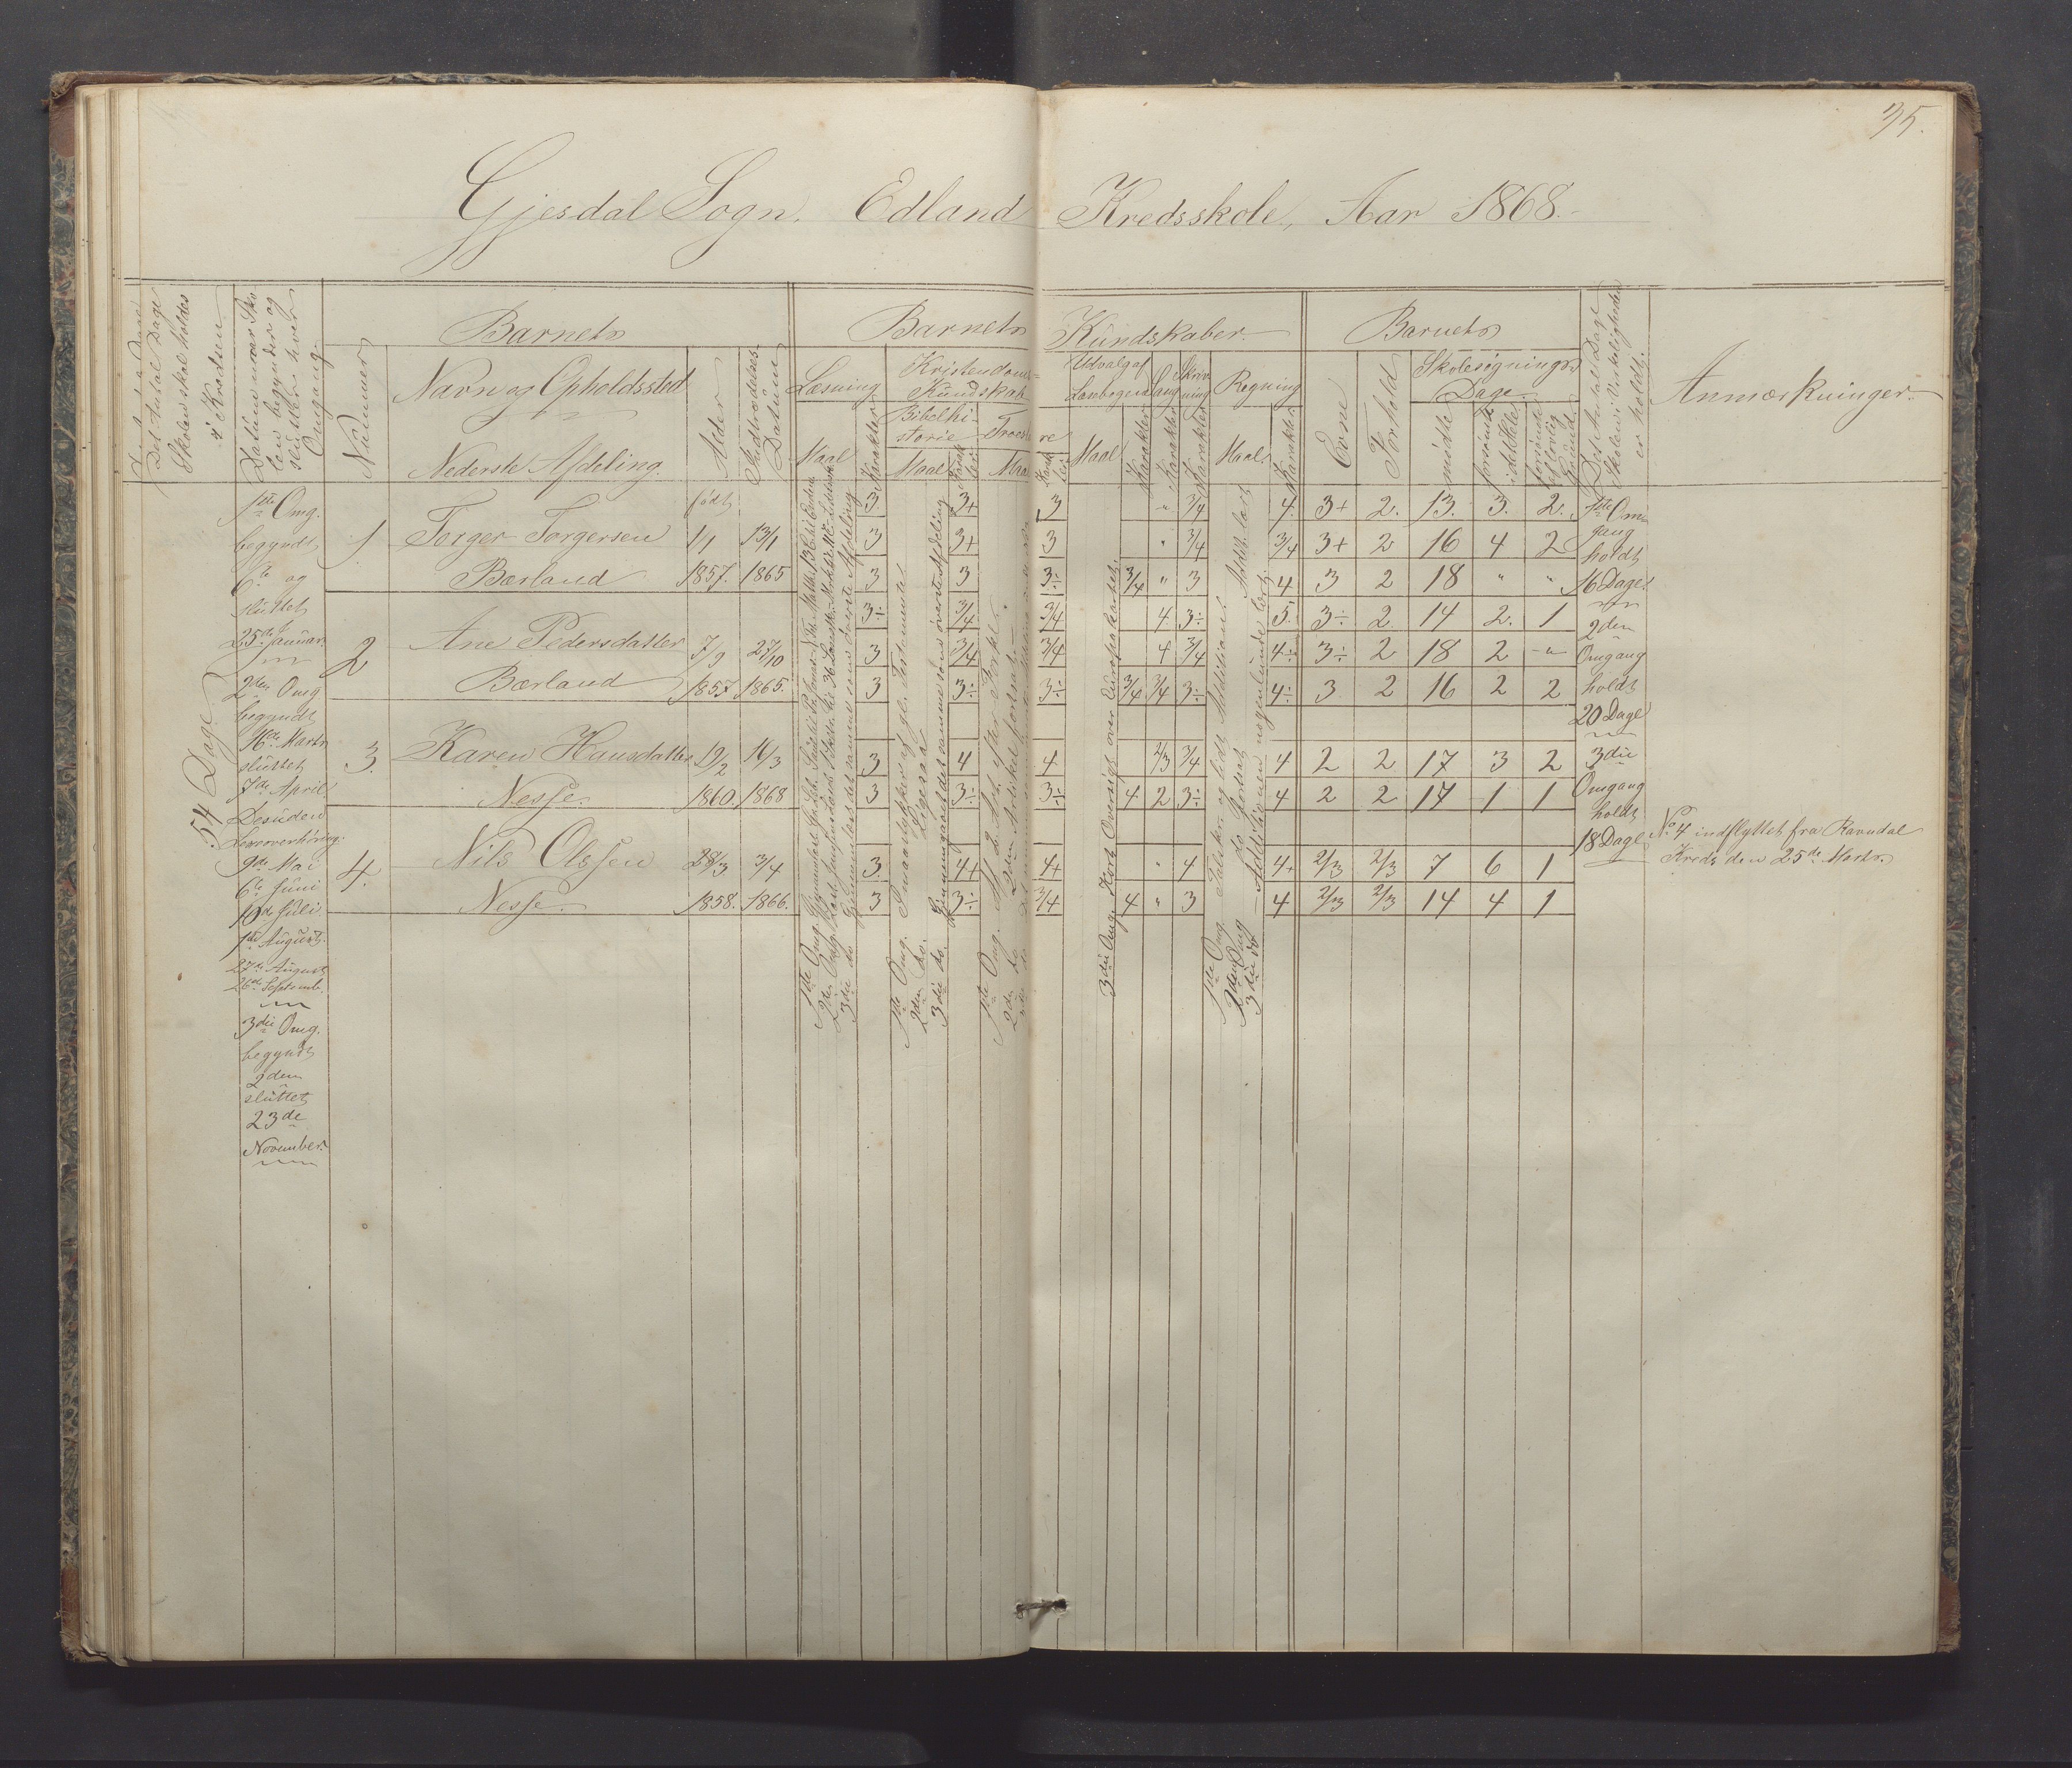 35.
Gjesdal Sogn. Edland Kredsskole, Aar 1868.
Det Antal Dage
Skolen skal holdes
i Kredsen
Datum naar Sko-
len begynder og
slutter hver
Omgang.
Nummer
Barnets
Navn og Opholdssted
Nederste Afdeling.
Alder
Indtrædelses-
Datum
Barnets Kundskaber.
Læsning
Maal
Karakter
Kristendoms-
Kundskab
Bibelhi-
storie
Maal
Karak-
ter
Troeslære
Maal
Karak-
ter
Udvalg af
Læsebogen
Maal
Karakter
Sang
Karakter
Skriv-
ning
Karakter
Regning
Maal.
Karakter
Barnets
Evne
Forhold
Skolesøgnings-
Dage
mødte
forsømte
i det Hele
forsømte
af lovlig
Grund.
Det Antal Dage
Skolen i Virkeligheden
er holdt.
Anmærkninger.
54 Dage
1ste Omg.
begyndt
6te og
sluttet
25de Januar.
2den Omg
begyndt
16de Marts
sluttet
7de April
Desuden
Læseoverhøring.
9de Mai
6te Juni
10de Juli
1ste August.
27de August
26de Septemb.
3die Omg.
begyndt
2den
sluttet
23de
November.
født
1 Torger Torgersen 1/1 13/1
Bærland 1857. 1865
2 Ane Pedersdatter 7/9 27/10
Bærland 1857 1865.
3. Karen Hansdatter 19/2 16/3
Nesse. 1860. 1868
4. Nils Olssen 28/3 3/4
Nesse. 1858. 1866.
3. 3+ 3 " 3/4 4. 3+ 2. 13. 3. 2.
3 3+ 3 " 3/4 3/4 3+ 2 16 4 2
3 3 3÷ 3/4 " 3 4 3 2 18 " "
3÷ 3/4 3/4 4 3÷ 5. 3÷ 2 14 2. 1
3 3/4 3/4 4 3/4 4÷ 3÷ 2 18 2 "
3 3÷ 3÷ 3/4 3/4 3÷ 4÷ 3 2 16 2 2
3 4 4 2/3 3/4 4 2 2 17 3 2
3 3÷ 3÷ 4 2 3÷ 4 2 2 17 1 1
3. 4+ 4+ " 4 4+ 2/3 2/3 7 6 1
3 3÷ 3/4 4 " 3 4 2/3 2/3 14 4 1
1ste Omg.
2den Omg.
3die do
1ste Omg. Smaastykker af gl. Testamente
2den do. Ligesaa
3die do. Gjennemgaaet det samme som øverste Afdeling
1ste Omg.
2den do
3die do
3die Omg. Kort Oversigt over Europakartet.
1ste Omg
2den Omg
3die do Additionen nogenlunde lært.
1ste Om-
gang
holdt
16 Dage.
2den
Omgang
holdt
20 Dage
3die
Omgang
holdt
18 Dage
No 4 indflyttet fra Ravndal
Kreds den 25de Marts.